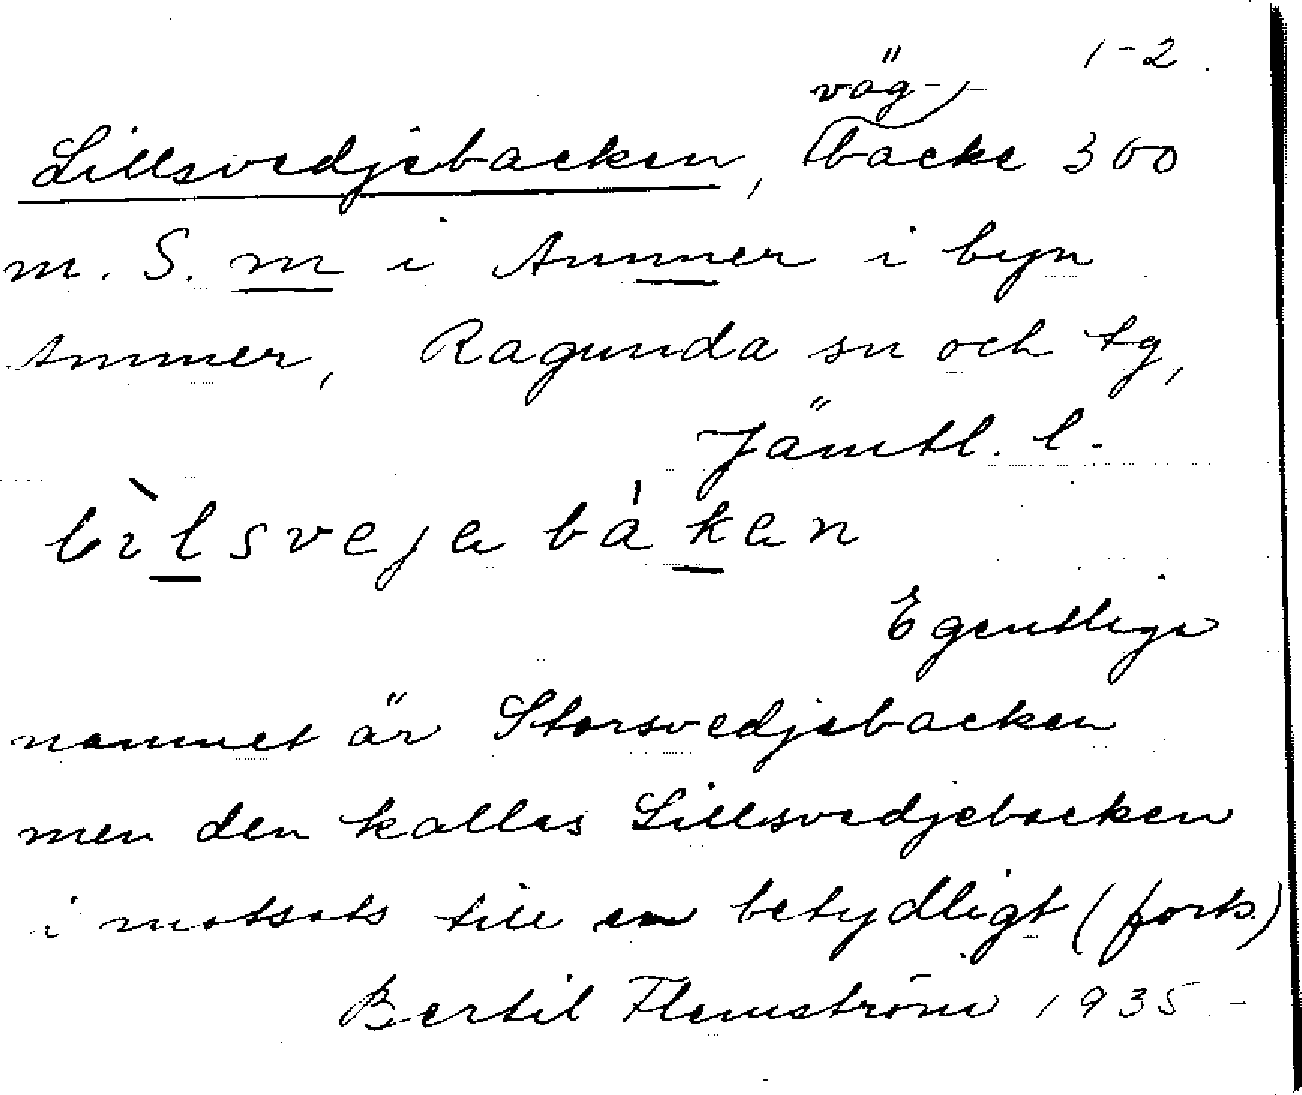 1-2.
väg-
Lillsvedjebacken, backe 300
m. S. m i Ammer i byn
Ammer, Ragunda sn och tg,
Jämtl. l.
lìlsvejabákan
Egentliga
namnet är Storsvedjebacken
men den kallas Lillsvedjebacken
i motsats till en betydligt (forts.)
Bertil Flemström 1935